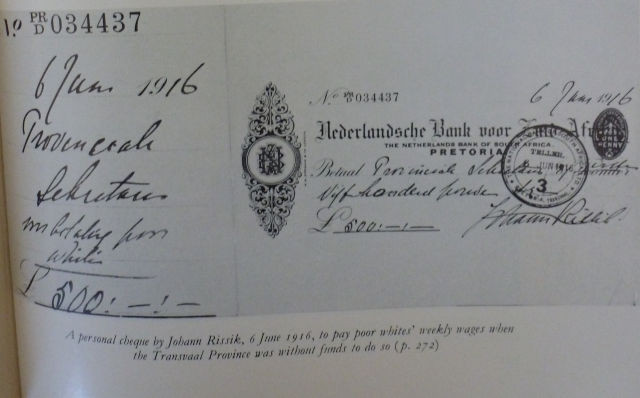 No PR/D 034437
6 Juni 1916
Provinciale
Sekretaris
betaling poor
whites
£ 500:—:—
No. PR/D 034437
6 Juni 1916
Nederlandsche Bank voor Zuid Afrika
THE NETHERLANDS BANK OF SOUTH AFRICA
PRETORIA
Betaal Provinciale Sekretaris
Vijf honderd
£ 500:—:—
Johann Rissik.
TELLER
6 JUN 1916
3
ONE
PENNY
A personal cheque by Johann Rissik, 6 June 1916, to pay poor whites' weekly wages when
the Transvaal Province was without funds to do so (p. 272)